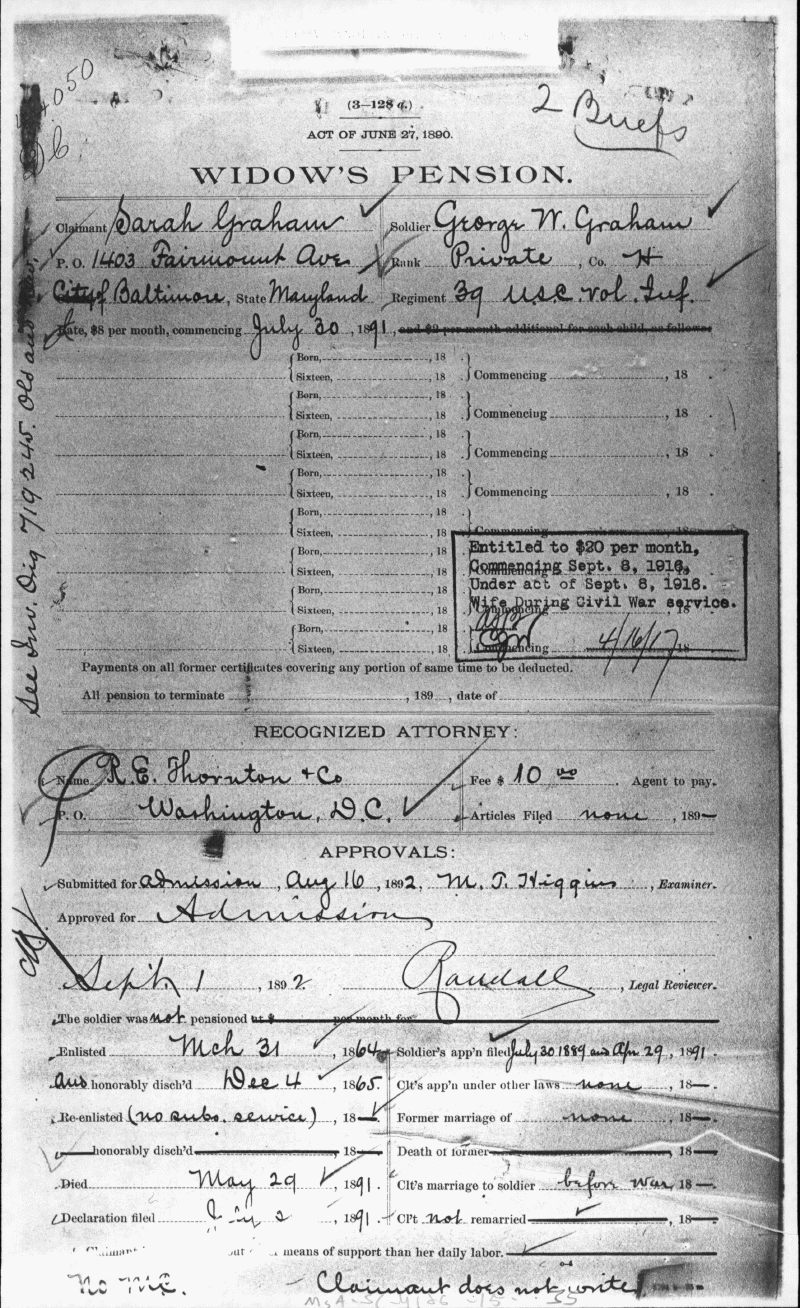 (3—128 a.)
2 Briefs
ACT OF JUNE 27, 1890.
WIDOW'S PENSION.
Claimant Sarah Graham Soldier George W. Graham
P. O. 1403 Fairmount Ave Rank Private, Co. H
City of Baltimore, State Maryland Regiment 39 U.S.C. Vol. Inf.
Rate, $8 per month, commencing July 30, 1891, and $2 per month additional for each child, as follows:
Born, , 18 .
Sixteen, , 18 . Commencing , 18 .
Born, , 18 .
Sixteen, , 18 . Commencing , 18 .
Born, , 18 .
Sixteen, , 18 . Commencing , 18 .
Born, , 18 .
Sixteen, , 18 . Commencing , 18 .
Born, , 18 .
Sixteen, , 18 . Commencing , 18 .
Born, , 18 .
Sixteen, , 18 . Commencing
Born, , 18 .
Sixteen, , 18 . Commencing , 18
Born, , 18 .
Sixteen, , 18 . Commencing 18
Entitled to $20 per month,
Commencing Sept. 8, 1916,
Under act of Sept. 8, 1916.
Wife During Civil War service.
4/16/17
See Inv. Orig 719245. Old and
Payments on all former certificates covering any portion of same time to be deducted.
All pension to terminate , 189 , date of
RECOGNIZED ATTORNEY:
Name R. E. Thornton & Co Fee $ 10 00 Agent to pay.
P. O. Washington, D.C. Articles Filed none, 189—
APPROVALS:
Submitted for admission, Aug 16, 1892, M. T. Higgins, Examiner.
Approved for Admission
Sept. 1, 1892 Randall, Legal Reviewer.
The soldier was not pensioned at $ per month for
Enlisted Mch 31, 1864 Soldier's app'n filed July 30 1889 and Apr 29, 1891
and honorably disch'd Dec 4, 1865. Clt's app'n under other laws none, 18—.
Re-enlisted (no subs. service), 18— Former marriage of none, 18—.
honorably disch'd 18— Death of former 18—.
Died May 29, 1891. Clt's marriage to soldier before war, 18—.
Declaration filed 2, 1891. Cl't not remarried, 18—.
means of support than her daily labor.
Claimant does not write